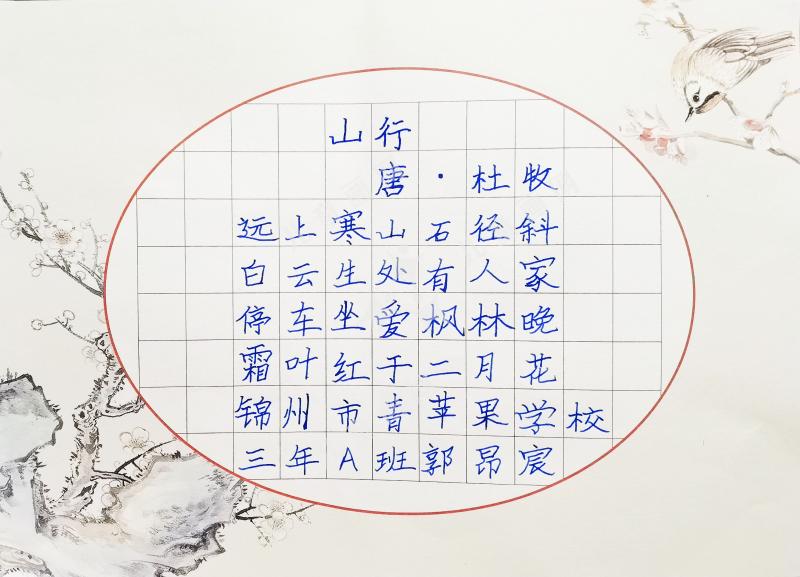 山行
唐·杜牧
远上寒山石径斜
白云生处有人家
停车坐爱枫林晚
霜叶红于二月花
锦州市青苹果学校
三年A班郭昂宸